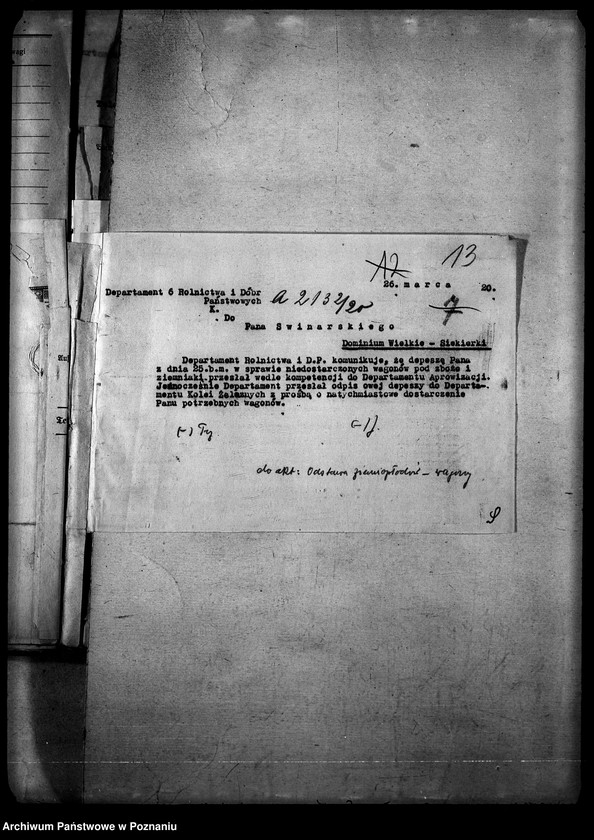 12
13
26. marca 20.
Departament 6 Rolnictwa i Dóbr
Państwowych
A 2132/20
7
K.
Do
Pana Swinarskiego
Dominium Wielkie - Siekierki
Departament Rolnictwa i D.P. komunikuje, że depeszę Pana
z dnia 25.b.m. w sprawie niedostarczonych wagonów pod zboże i
ziemniaki przesłał wedle kompetencji do Departamentu Aprowizacji.
Jednocześnie Departament przesłał odpis owej depeszy do Departa-
mentu Kolei Żelaznych z prośbą o natychmiastowe dostarczenie
Panu potrzebnych wagonów.
do akt: Odstawa ziemiopłodów - wagony
Archiwum Państwowe w Poznaniu